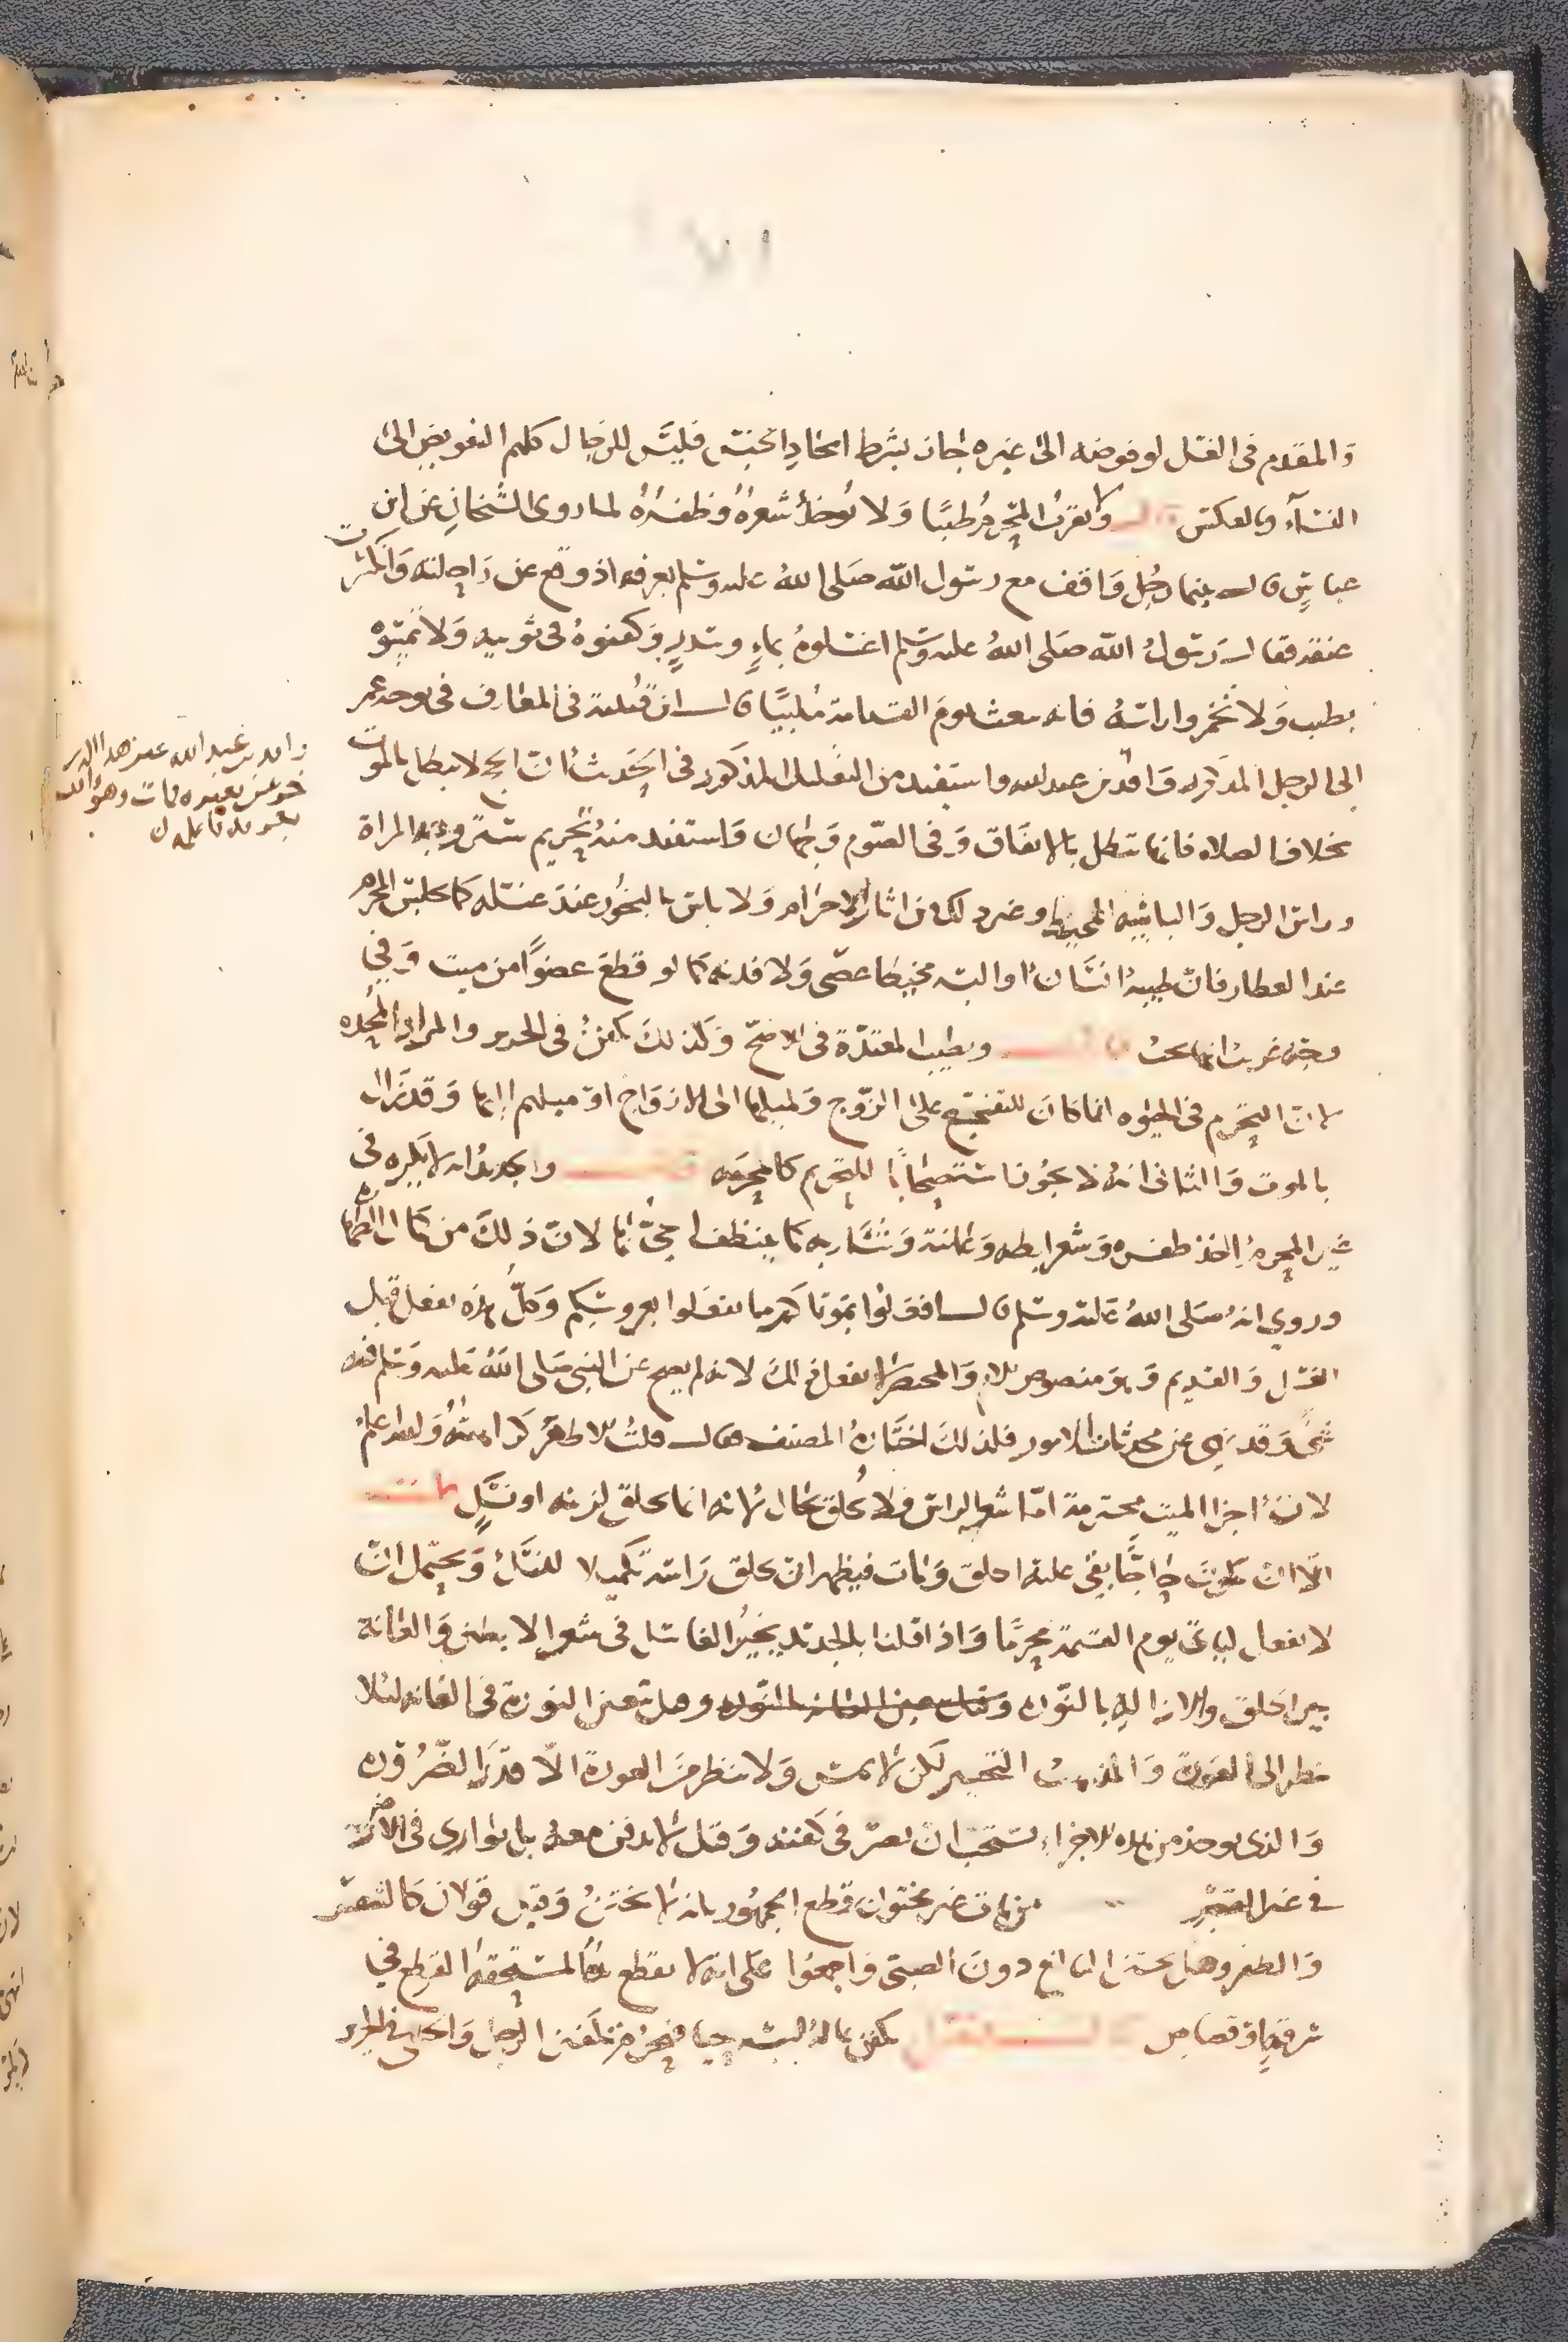 والمقدم في الغسل لو فوضه الى غيره جاز بشرط اتحاد الجنس فليس للرجال كلهم التفويض الى
النساء وبالعكس ولا يقرب المحرم طيبًا ولا يوخذ شعره وظفره لما روى الشيخان عن ابن
عباس قال بينما رجل واقف مع رسول الله صلى الله عليه وسلم بعرفه اذ وقع عن راحلته وانكسرت
عنقه فقال رسول الله صلى الله عليه وسلم اغسلوه بماءٍ وسدرٍ وكفنوه في ثوبيه ولا تمسوه
بطيب ولا تخمروا راسه فانه يبعث يوم القيامة ملبيًا قال ابن قتيبة في المعارف في
الرجل المذكور واقد بن عبد الله واستفيد من التعليل المذكور في الحديث ان الحج لا يبطل بالموت
بخلاف الصلاه فانها تبطل بالاتفاق وفي الصوم وجهان واستفيد منه تحريم ستر وجه المراة
وراس الرجل والباسه المحيط وغير ذلك من اثار الاحرام ولا باس بالبخور عند غسله كما يجلس المحرم
عند العطار فان طيبه انسان او البسه مخيطا عصى ولا فديه كما لو قطع عضوًا من ميت وفي
وجه غريب انها تجب وتطيب المعتدة في الاصح وكذلك تكفن في الحرير والمراد المحده
لان التحريم في الحيوه انما كان للتفجع على الزوج ولميلها الى الازواج او ميلهم اليها وقد زال
بالموت والثاني انه لا يجوز استصحابًا للتحريم كالمحرمه والجديد انه لا يكره في
غير المحرم اخذ ظفره وشعر ابطه وعانته وشاربه كما يتنظف الحي بها لان ذلك من كمال الطهاره
وروي انه صلى الله عليه وسلم قال افعلوا بموتاكم ما تفعلوا بعروسكم وكل هذه تفعل قبل
الغسل والقديم وهو منصوص الام والمختصر لا يفعل ذلك لانه لم يصح عن النبي صلى الله عليه وسلم فيه
شي وقد نهي عن محدثات الامور فلذلك اختاره المصنف فقال قلت الاظهر كراهته والله اعلم
لان اجزا الميت محترمة امّا شعر الراس فلا يحلق بحال لانه انما يحلق لزينه او نسكٍ
الا ان يكون حاجًّا بقي عليه الحلق ومات فيظهر ان يحلق راسه تكميلا للنسك ويحتمل ان
لا يفعل لياتي يوم القيمة محرمًا واذا قلنا بالجديد يخير الغاسل في شعر الابطين والعانة
بين الحلق والازاله بالنوره وهل تتعين النورة في العانه لئلا
ينظر الى العورة والمذهب التخيير لكن لا يمس ولا ينظر من العورة الا قدر الضرورة
والذي يوخذ من هذه الاجزاء يستحب ان يصر في كفنه وقيل لا يدفن معه بل يوارى في الارض
في غير القبر من مات غير مختون قطع الجمهور بانه لا يختن وقيل قولان كالشعر
والظفر وهل يختن البالغ دون الصبي واجمعوا على انه لا يقطع يد المستحقه القطع في
سرقةٍ او قصاص يكفن بما له لبسه حيا فيجوز تكفين الرجل والخنثى في الحرير
واقد بن عبد الله
خر عن بعيره فمات وهو الذي